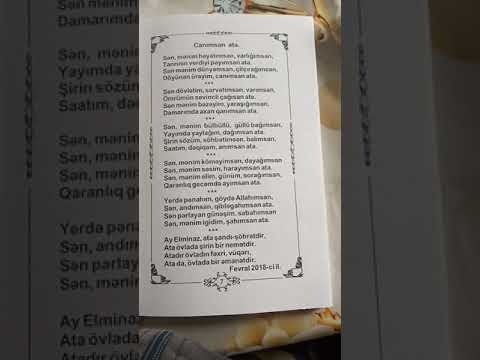 Canımsan ata.
Sən, mənim həyatımsan, varlığımsan,
Tanrının verdiyi payımsan ata.
Sən mənim dünyamsan, çilçırağımsan,
Döyünən ürəyim, canımsan ata.
***
Sən dövlətim, sərvətimsən, varımsan,
Ömrümün sevincli çağısan ata.
Sən mənim bəzəyim, yaraşığımsan,
Damarımda axan qanımsan ata.
***
Sən, mənim bülbüllü, güllü bağımsan,
Yayımda yaylağım, dağımsan ata.
Şirin sözüm, söhbətimsən, balımsan,
Saatım, dəqiqəm, anımsan ata.
***
Sən, mənim köməyimsən, dayağımsan
Sən, mənim səsim, harayımsan ata.
Sən, mənim elim, günüm, sorağımsan,
Qaranlıq gecəmdə ayımsan ata.
***
Yerdə pənahım, göydə Allahımsan,
Sən, andımsan, qibləgahımsan ata.
Sən parlayan günəşim, sabahımsan
Sən, mənim igidim, şahımsan ata.
***
Ay Elminaz, ata şandı-şöhrətdir,
Ata övlada şirin bir nemətdir.
Atadır övladın fəxri, vüqarı,
Ata da, övlada bir əmanətdir.
Fevral 2018-ci il.
7